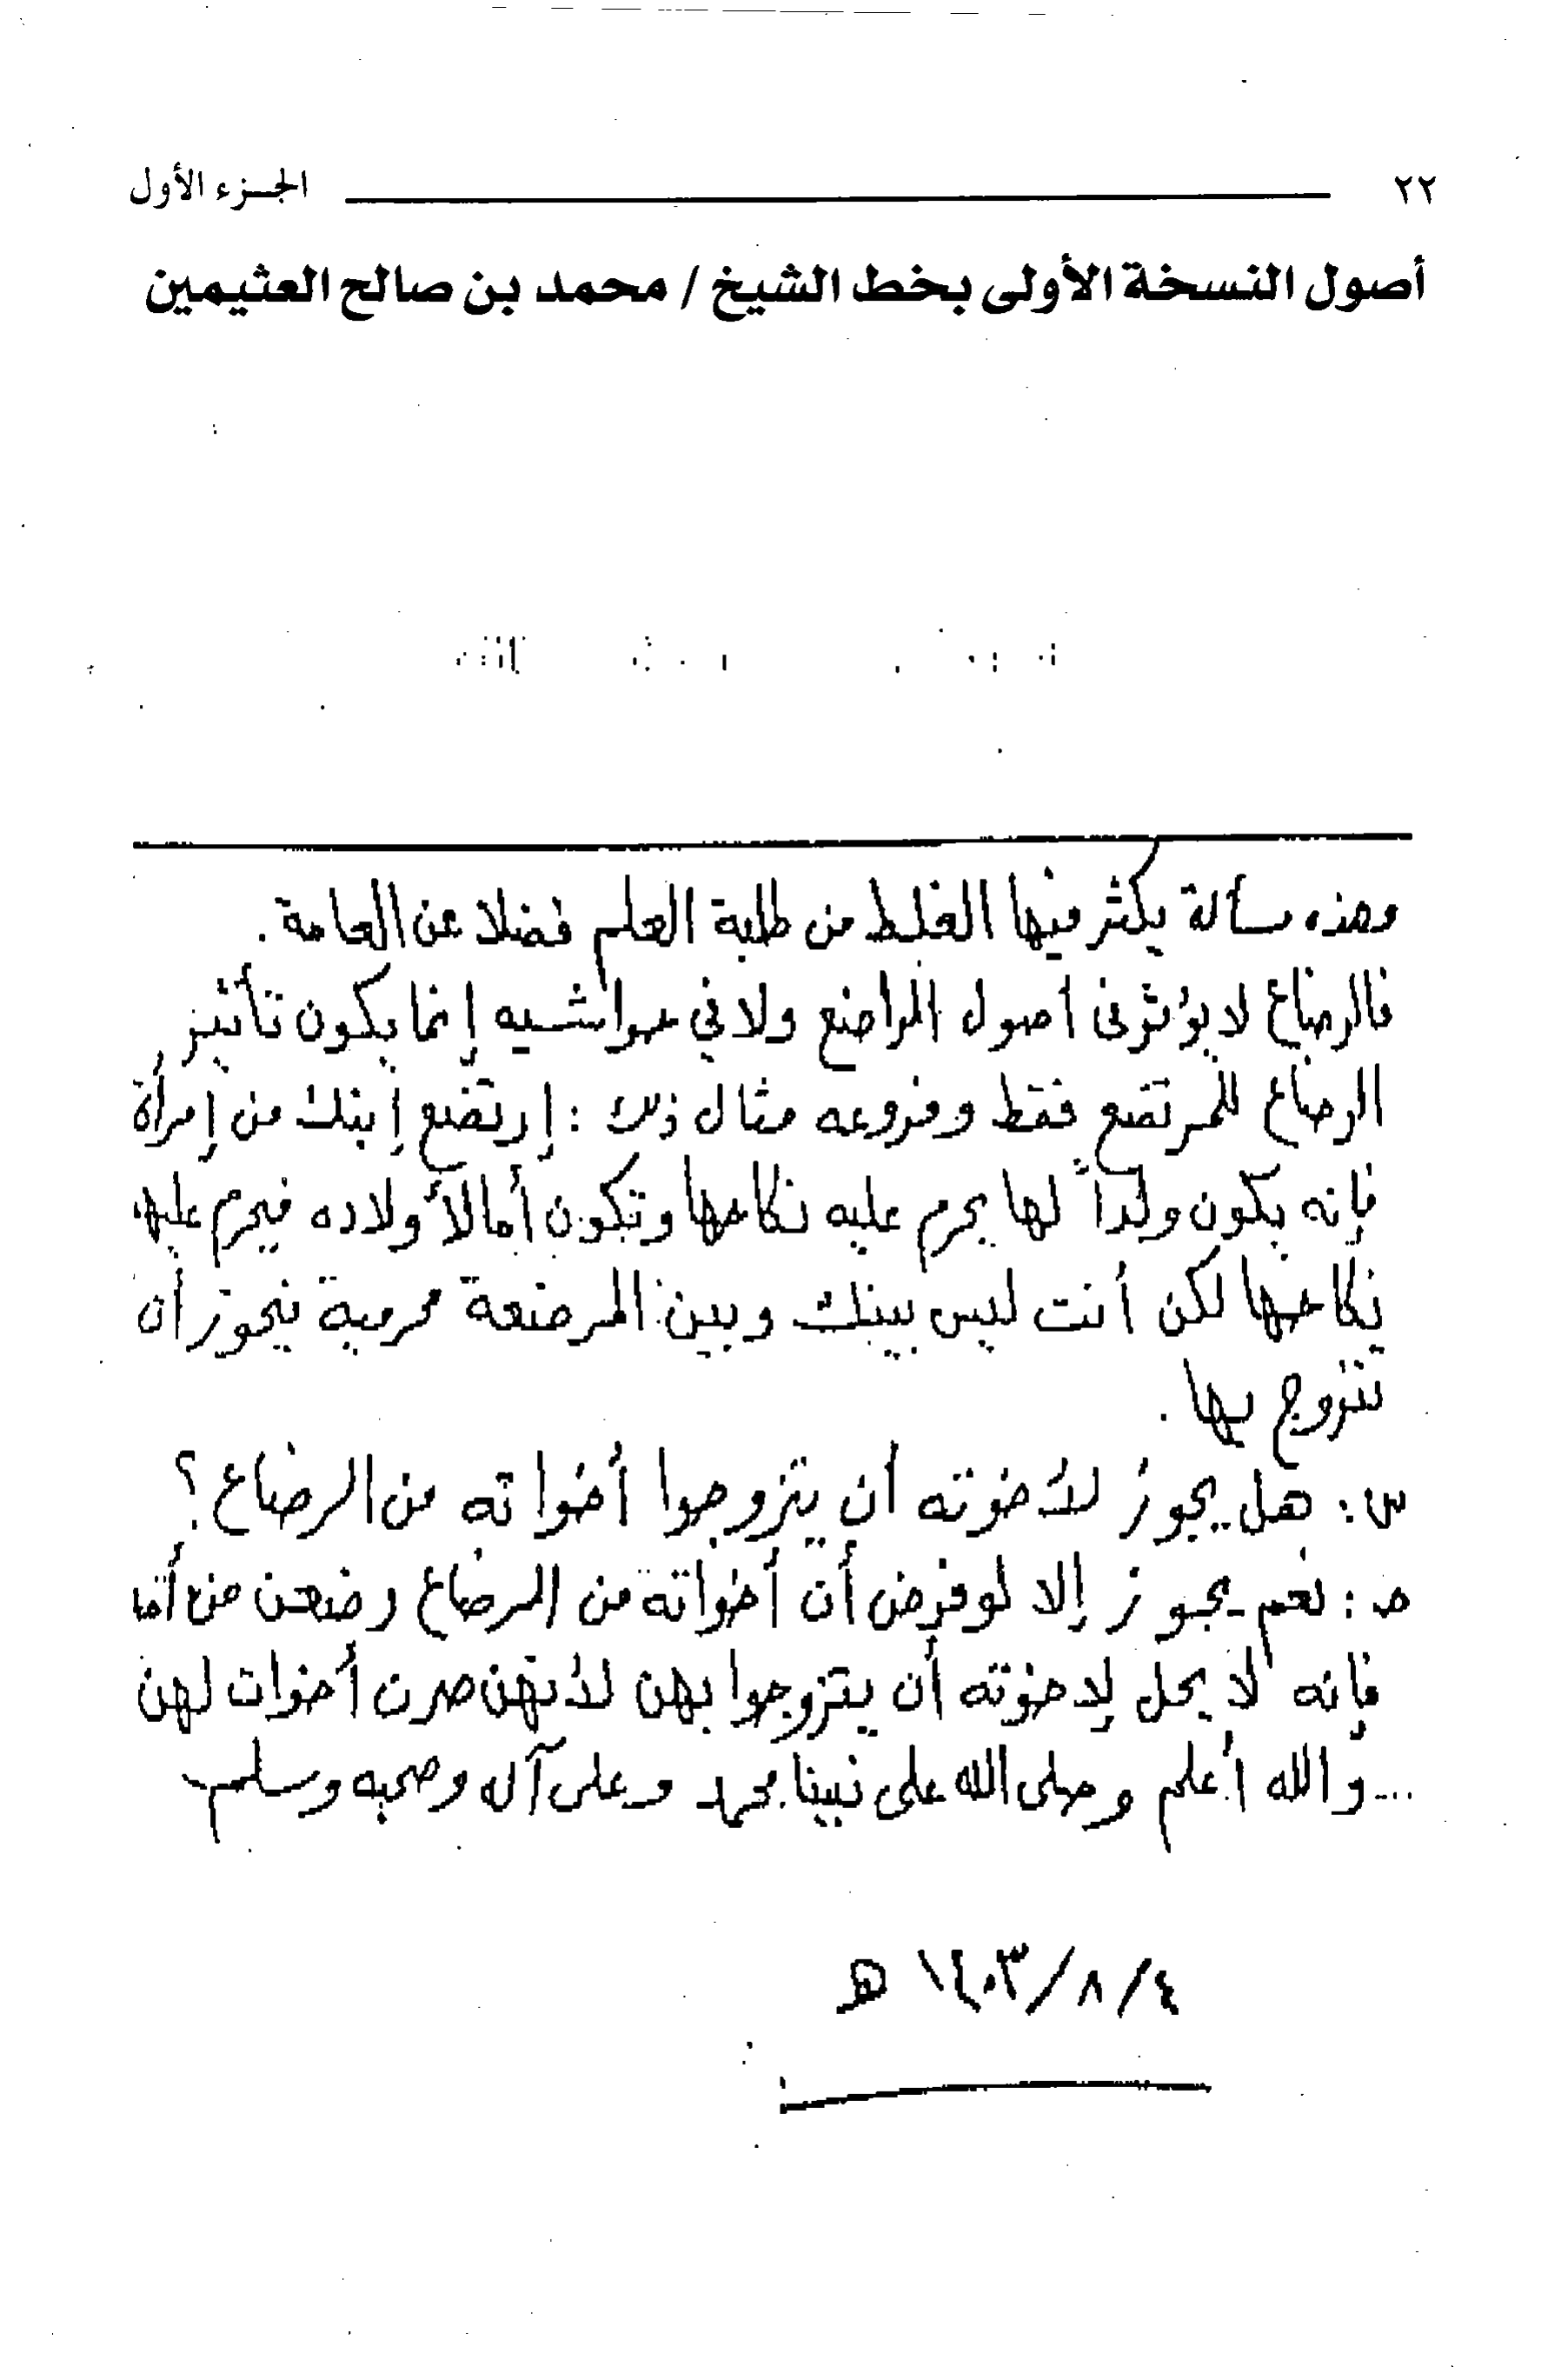 ٢٢ الجزء الأول
أصول النسخة الأولى بخط الشيخ / محمد بن صالح العثيمين
وهذه مسألة يكثر فيها الغلط من طلبة العلم فضلا عن العامة .
فالرضاع لا يؤثر في أصول الراضع ولا في حواشيه إنما يكون تأثير
الرضاع للمرتضع فقط وفروعه مثال ذلك : إرتضع إبنك من إمرأة
فإنه يكون ولداً لها يحرم عليه نكاحها وتكون أما لأولاده فيحرم عليها
نكاحها لكن أنت ليس بينك وبين المرضعة محرمية فيجوز أن
تتزوج بها .
س : هل يجوز لأخوته أن يتزوجوا أخواته من الرضاع ؟
جـ : نعم يجوز إلا لو فرض أن أخواته من الرضاع رضعن من أمه
فإنه لا يحل لإخوته أن يتزوجوا بهن لأنهن صرن أخوات لهن
... والله أعلم وصلى الله على نبينا محمد وعلى آله وصحبه وسلم
٤/٨/١٤٠٣ هـ